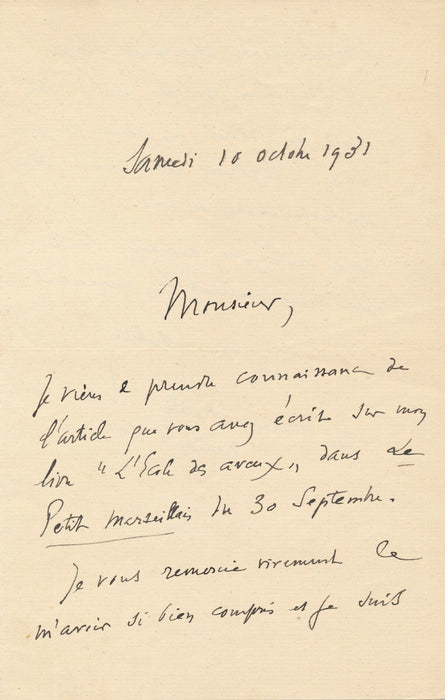 Samedi 10 octobre 1931
Monsieur,
Je viens de prendre connaissance de
l'article que vous avez écrit sur mon
livre "L'Ecole des avaux", dans Le
Petit Marseillais du 30 Septembre.
Je vous remercie vivement de
m'avoir si bien compris et je suis